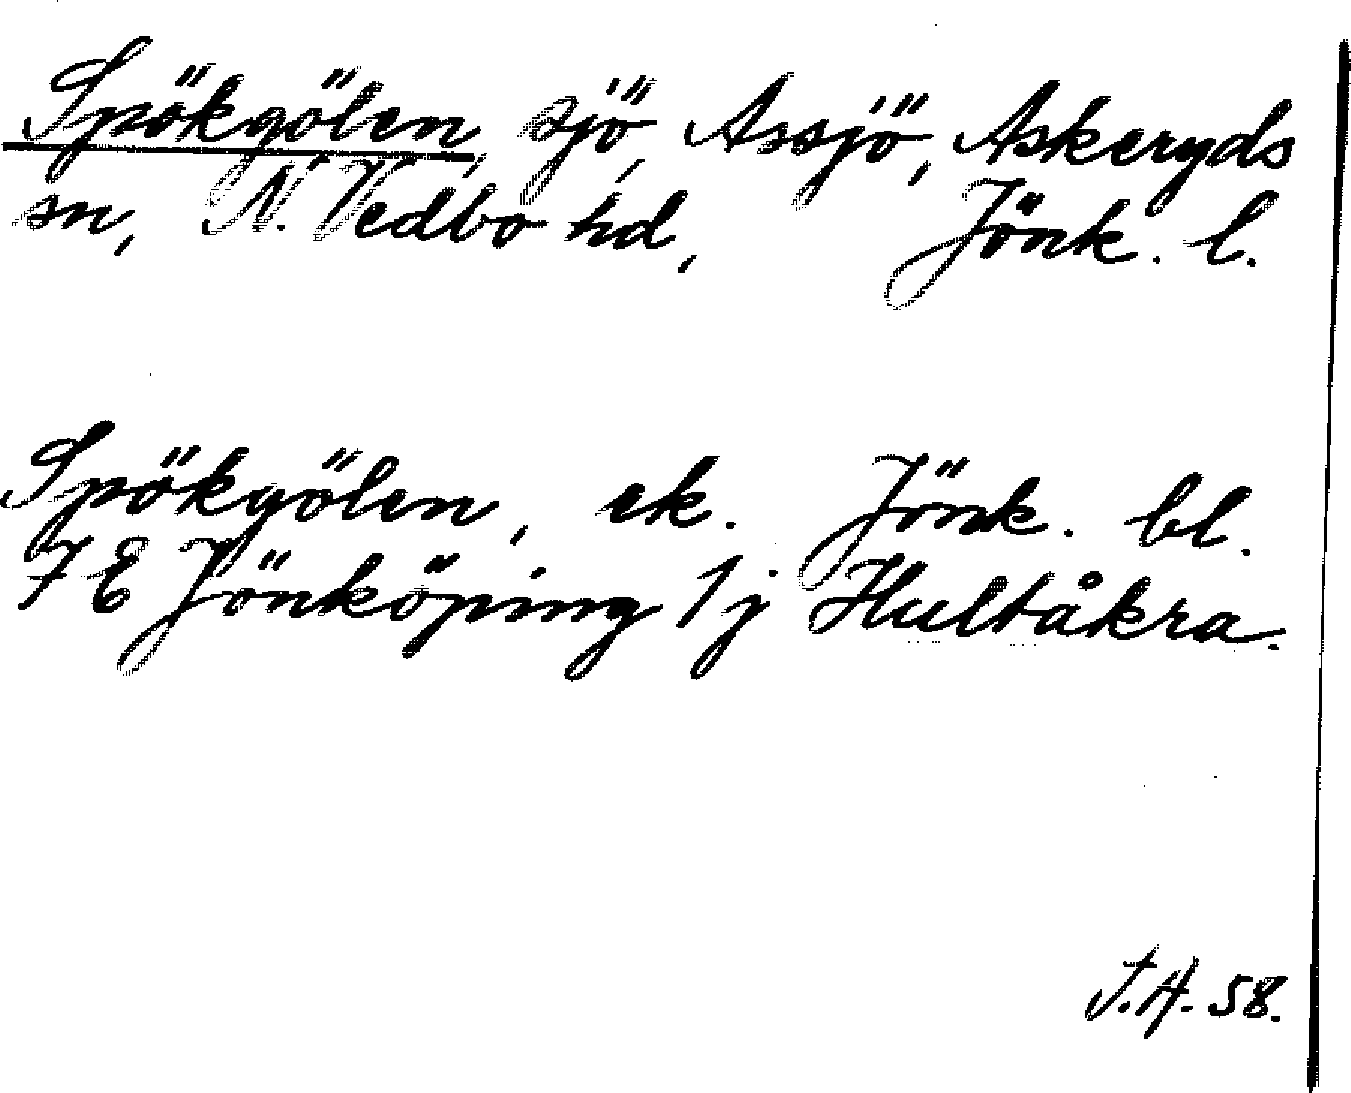 Spökgölen, sjö, Assjö, Askeryds
sn, N. Vedbo hd, Jönk. l.
Spökgölen, ek. Jönk. bl.
7 E Jönköping 1 j Hultåkra.
J.A. 58.